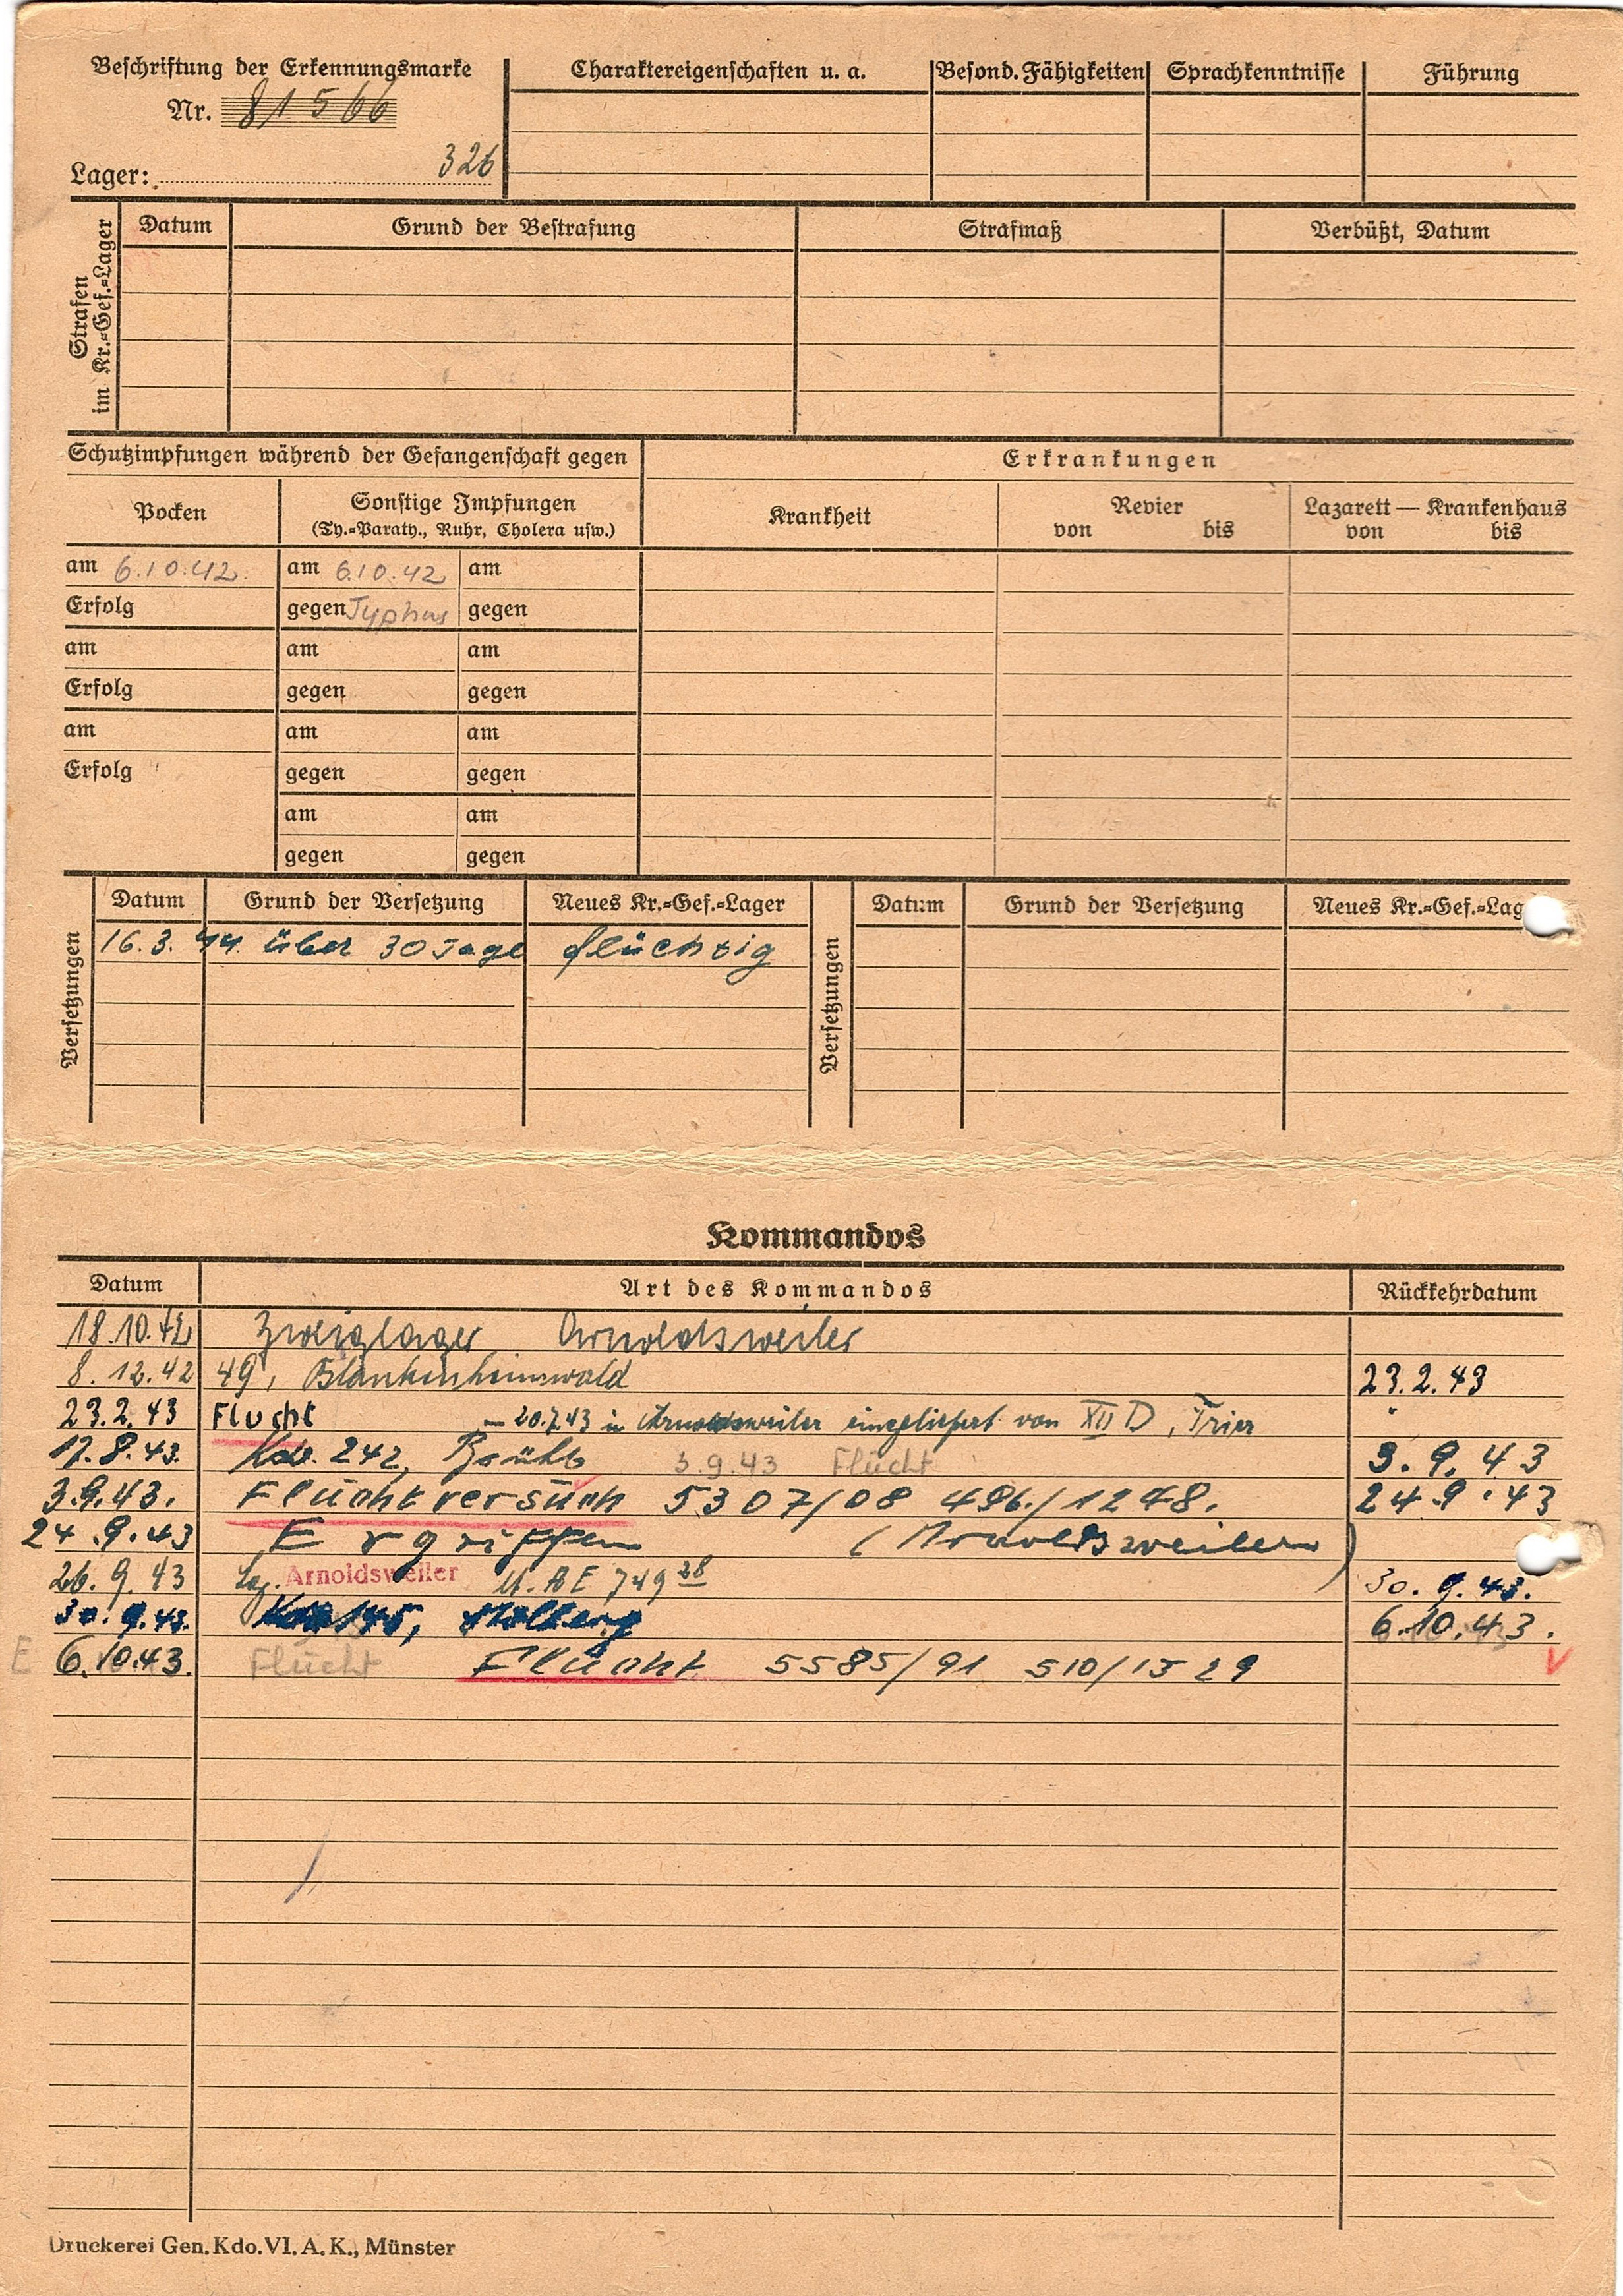 Beschriftung der Erkennungsmarke
Nr. 81566
Lager: 326
Charaktereigenschaften u. a. Besond. Fähigkeiten Sprachkenntnisse Führung
Strafen im Kr.=Gef.=Lager
Datum Grund der Bestrafung Strafmaß Verbüßt, Datum
Schutzimpfungen während der Gefangenschaft gegen
Erkrankungen
Pocken Sonstige Impfungen
(Ty.=Paraty., Ruhr, Cholera usw.)
Krankheit Revier Lazarett — Krankenhaus
von bis von bis
am 6.10.42 am 6.10.42 am
Erfolg gegen Typhus gegen
am am am
Erfolg gegen gegen
am am am
Erfolg gegen gegen
am am
gegen gegen
Versetzungen
Datum Grund der Versetzung Neues Kr.=Gef.=Lager
16.3.44. über 30 Tage flüchtig
Versetzungen
Datum Grund der Versetzung Neues Kr.=Gef.=Lag
Kommandos
Datum Art des Kommandos Rückkehrdatum
18.10.42 Zweiglager Arnoldsweiler
8.12.42 49, Blankenheimwald 23.2.43
23.2.43 Flucht – 20.7.43 in Arnoldsweiler eingeliefert von XII D, Trier
17.8.43. Kdo. 242, Brühl 3.9.43 Flucht 3.9.43
3.9.43. Fluchtversuch 5307/08 496/1248. 24.9.43
24.9.43 Ergriffen (Arnoldsweiler)
26.9.43 Lag. Arnoldsweiler 749 28 30.9.43.
30.9.43. Kdo 145, Stolberg 6.10.43.
E 6.10.43. Flucht Flucht 5585/91 510/1529
Druckerei Gen. Kdo. VI. A. K., Münster